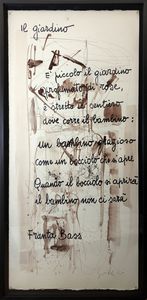 Il giardino
E' piccolo il giardino
profumato di rose,
è stretto il sentiero
dove corre il bambino:
un bambino grazioso
come un bocciolo che si apre
Quando il bocciolo si aprirà
il bambino non ci sarà
Franta Bass